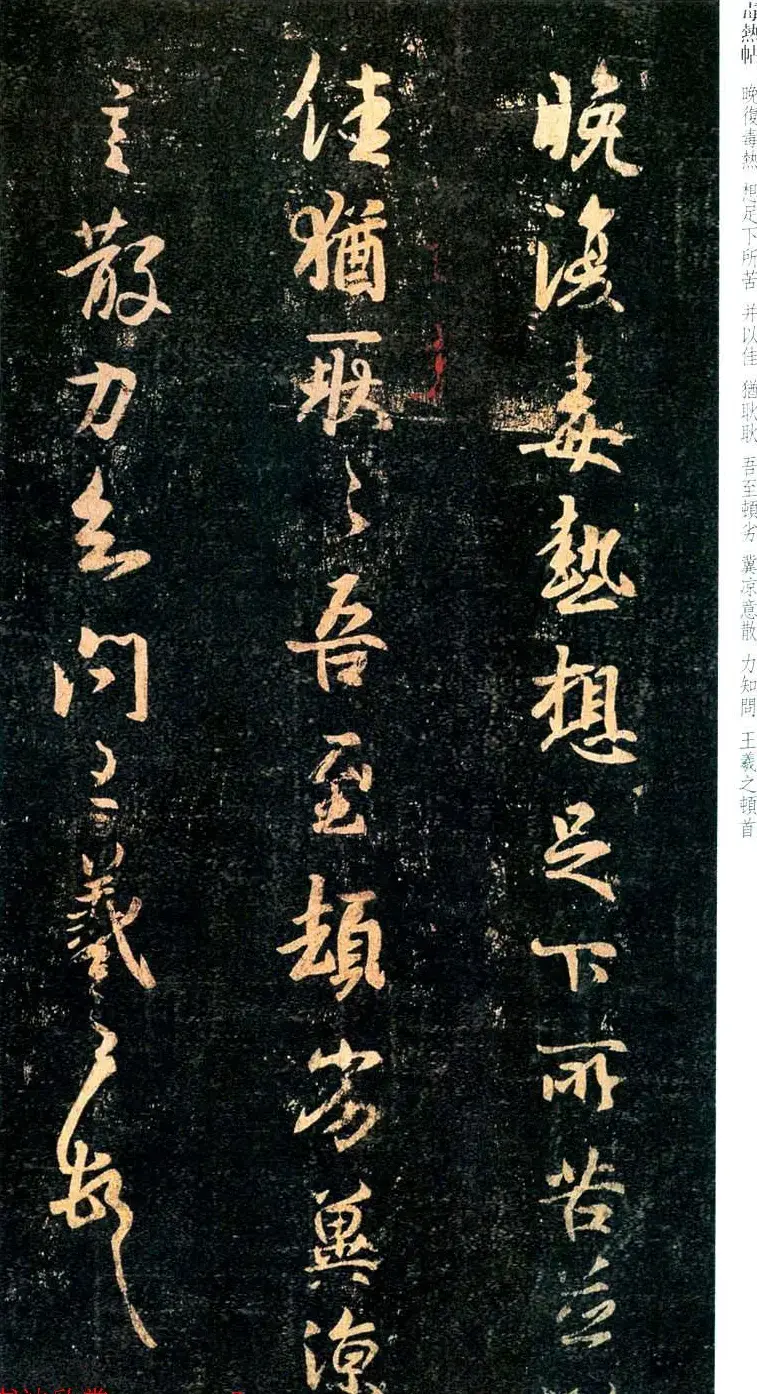 毒熱帖 晚復毒熱 想足下所苦 并以佳 猶耿耿 吾至頓劣 冀凉意散 力知問 王羲之頓首
晚復毒熱想足下所苦並
佳猶耿〻吾至頓劣冀涼
意散力知問王羲之頓首